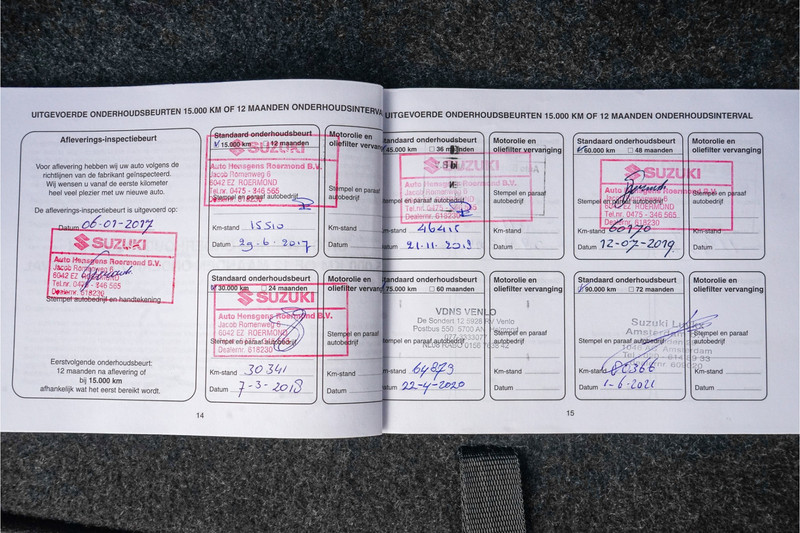 UITGEVOERDE ONDERHOUDSBEURTEN 15.000 KM OF 12 MAANDEN ONDERHOUDSINTERVAL
Afleverings-inspectiebeurt
Voor aflevering hebben wij uw auto volgens de
richtlijnen van de fabrikant geïnspecteerd.
Wij wensen u vanaf de eerste kilometer
heel veel plezier met uw nieuwe auto.
De aflevering-inspectiebeurt is uitgevoerd op:
Datum 06-01-2017
SUZUKI
Auto Hensgens Roermond B.V.
Jacob Romenweg 6
6042 EZ ROERMOND
Tel.nr. 0475 - 346 565
Dealernr. 618230
Stempel autobedrijf en handtekening
Eerstvolgende onderhoudsbeurt:
12 maanden na aflevering of
bij 15.000 km
afhankelijk wat het eerst bereikt wordt.
Standaard onderhoudsbeurt
15.000 km 12 maanden
SUZUKI
Auto Hensgens Roermond B.V.
Jacob Romenweg 6
6042 EZ ROERMOND
Tel.nr. 0475 - 346 565
Stempel en paraaf autobedrijf
Dealernr. 618230
Km-stand 15510
Datum 29-6-2017
Motorolie en
oliefilter vervanging
Stempel en paraaf
autobedrijf
Km-stand
Datum
Standaard onderhoudsbeurt
30.000 km 24 maanden
SUZUKI
Auto Hensgens Roermond B.V.
Jacob Romenweg 6
6042 EZ ROERMOND
Stempel en paraaf autobedrijf
Dealernr. 618230
Km-stand 30341
Datum 7-3-2018
Motorolie en
oliefilter vervanging
Stempel en paraaf
autobedrijf
Km-stand
Datum
14
UITGEVOERDE ONDERHOUDSBEURTEN 15.000 KM OF 12 MAANDEN ONDERHOUDSINTERVAL
Standaard onderhoudsbeurt
45.000 km 36 maanden
SUZUKI
Auto Hensgens Roermond B.V.
Jacob Romenweg 6
Dealernr. 618230
Km-stand 46415
Datum 21-11-2018
Motorolie en
oliefilter vervanging
Stempel en paraaf
autobedrijf
Km-stand
Datum
Standaard onderhoudsbeurt
60.000 km 48 maanden
SUZUKI
Auto Hensgens Roermond B.V.
Jacob Romenweg 6
6042 EZ ROERMOND
Tel.nr. 0475 - 346 565
Dealernr. 618230
Km-stand 60170
Datum 12-07-2019
Motorolie en
oliefilter vervanging
Stempel en paraaf
autobedrijf
Km-stand
Datum
Standaard onderhoudsbeurt
75.000 km 60 maanden
VDNS VENLO
De Sondert 12 5928 RV Venlo
Km-stand 64879
Datum 22-4-2020
Motorolie en
oliefilter vervanging
Stempel en paraaf
autobedrijf
Km-stand
Datum
Standaard onderhoudsbeurt
90.000 km 72 maanden
Stempel en paraaf autobedrijf
Km-stand
Datum 1-6-2021
Motorolie en
oliefilter vervanging
Stempel en paraaf
autobedrijf
Km-stand
Datum
15